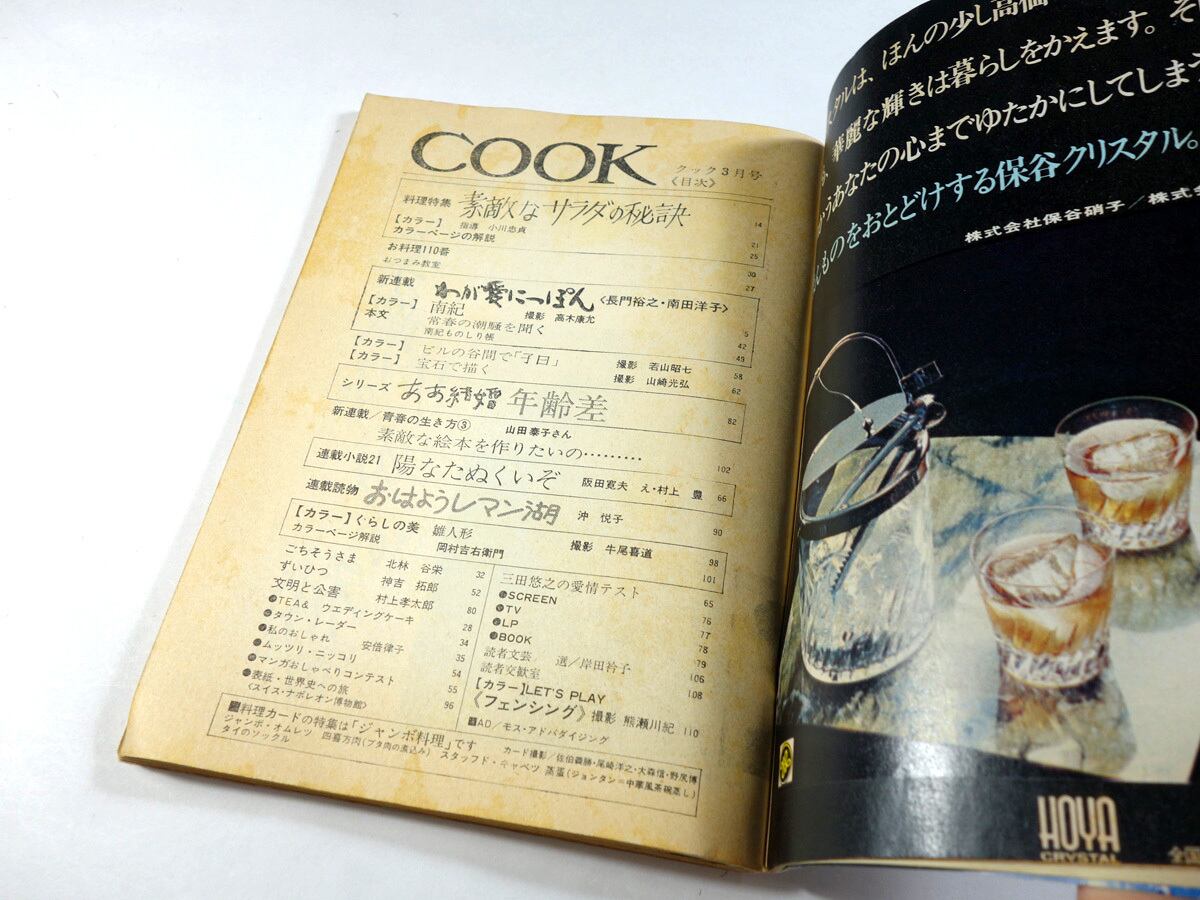 COOK
クック3月号
《目次》
料理特集 素敵なサラダの秘訣 14
【カラー】 指導 小川忠貞 21
カラーページの解説 25
お料理110番 30
おつまみ教室 27
新連載 わが愛にっぽん 〈長門裕之・南田洋子〉
【カラー】 南紀 撮影 高木康允 5
本文 常春の潮騒を聞く 42
南紀ものしり帳 49
【カラー】 ビルの谷間で「子日」 撮影 若山昭七 58
【カラー】 宝石で描く 撮影 山崎光弘 62
シリーズ ああ結婚 年齢差 82
新連載/青春の生き方③ 山田泰子さん
素敵な絵本を作りたいの……… 102
連載小説21 陽なたぬくいぞ 阪田寛夫 え・村上 豊 66
連載読物 おはようレマン湖 沖 悦子 90
【カラー】くらしの美 雛人形 撮影 牛尾喜道 98
カラーページ解説 岡村吉右衛門 101
ごちそうさま 北林 谷栄 32
ずいひつ 神吉 拓郎 52
文明と公害 村上孝太郎 80
TEA& ウエディングケーキ 28
タウン・レーダー 34
私のおしゃれ 安倍律子 35
ムッツリ・ニッコリ 54
マンガおしゃべりコンテスト 55
表紙・世界史への旅 96
〈スイス・ナポレオン博物館〉
三田悠之の愛情テスト 65
SCREEN 76
TV 77
LP 78
BOOK 79
読者文芸 選/岸田衿子 106
読者交歓室 108
【カラー】LET'S PLAY
《フェンシング》撮影 熊瀬川紀 110
AD/モス・アドバダイジング
料理カードの特集は「ジャンボ料理」です
カード撮影/佐伯義勝・尾崎洋之・大森信・野尻博
ジャンボ・オムレツ 四喜万肉(ブタ肉の煮込み) スタッフド・キャベツ 蒸蛋(ジョンタン=中華風茶碗蒸し)
タイのソックル
タルは、ほんの少し高価
華麗な輝きは暮らしをかえます。そ
うあなたの心までゆたかにしてしまう
んものをおとどけする保谷クリスタル。
株式会社保谷硝子/株式
HOYA
CRYSTAL
全国